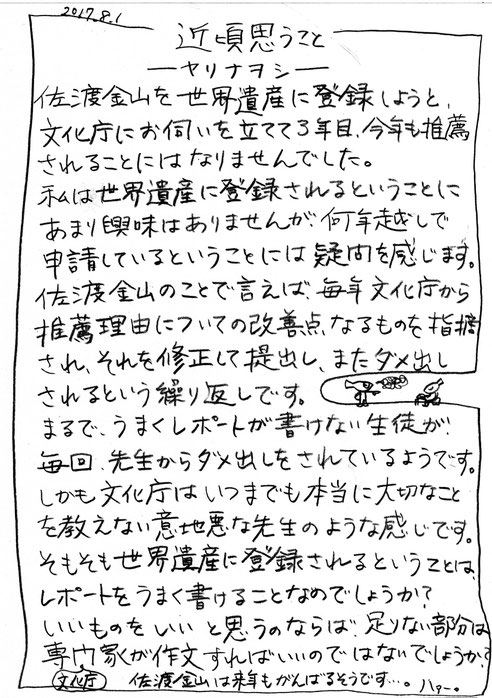 2017.8.1
近頃思うこと
―ヤリナヲシ―
佐渡金山を世界遺産に登録しようと、
文化庁にお伺いを立てて3年目、今年も推薦
されることにはなりませんでした。
私は世界遺産に登録されるということに
あまり興味はありませんが、何年越しで
申請しているということには疑問を感じます。
佐渡金山のことで言えば、毎年文化庁から
推薦理由についての改善点なるものを指摘
され、それを修正して提出し、またダメ出し
されるという繰り返しです。
まるで、うまくレポートが書けない生徒が、
毎回、先生からダメ出しをされているようです。
しかも文化庁はいつまでも本当に大切なこと
を教えない意地悪な先生のような感じです。
そもそも世界遺産に登録されるということは、
レポートをうまく書けることなのでしょうか?
いいものをいいと思うのならば、足りない部分は
専門家が作文すればいいのではないでしょうか?
文化庁
佐渡金山は来年もがんばるそうです…。ハァー。